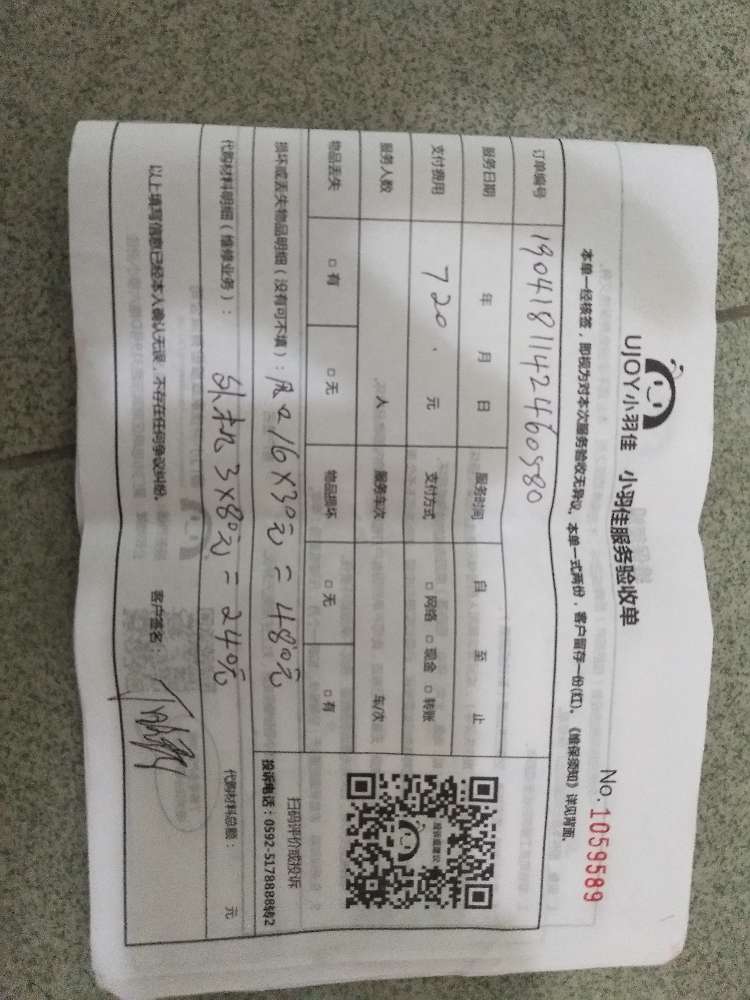 UJOY小羽佳 小羽佳服务验收单
No. 1059589
本单一经核签，即视为对本次服务验收无异议。本单一式两份，客户留存一份(红)。《维保须知》详见背面。
订单编号 1904181142460580
服务日期 年 月 日 服务时间 自 至 止
支付费用 720. 元 支付方式 □网络 □现金 □转账
服务人数 人 服务车次 车/次
物品丢失 □有 □无 物品损坏 □无 □有
投诉建议
扫码评价或投诉
投诉电话：0592-5178888转2
损坏或丢失物品明细（没有可不填）：风口16X30元=480元
代购材料明细（维修业务）：外机3X80元=240元 代购材料总额： 元
以上填写信息已经本人确认无误，不存在任何争议纠纷。 客户签名：